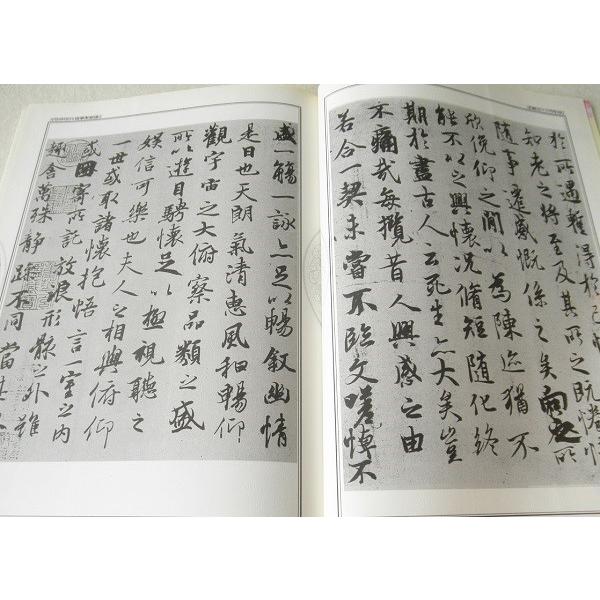 盛一觴一詠亦足以暢叙幽情
是日也天朗氣清惠風和暢仰
觀宇宙之大俯察品類之盛
所以遊目騁懷足以極視聽之
娛信可樂也夫人之相與俯仰
一世或取諸懷抱悟言一室之內
或因寄所託放浪形骸之外雖
趣舍萬殊靜躁不同當其
於所遇蹔得於己
知老之將至及其所之既惓情
隨事遷感慨係之矣向之所
欣俛仰之間以為陳迹猶不
能不以之興懷況脩短隨化終
期於盡古人云死生亦大矣豈
不痛哉每攬昔人興感之由
若合一契未嘗不臨文嗟悼不